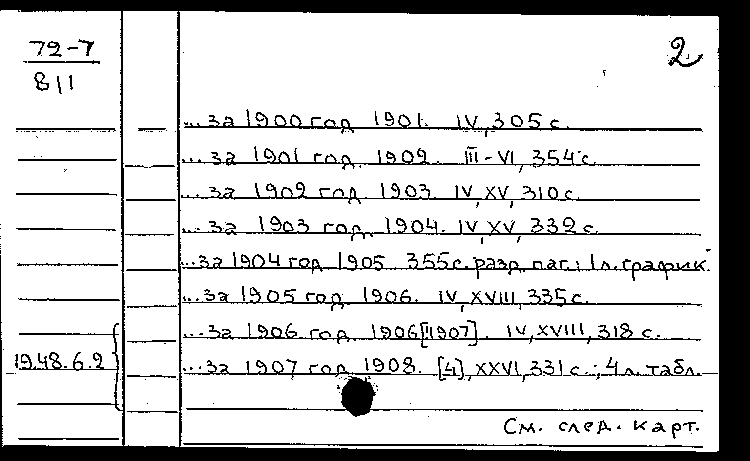 72-7
B11
2
...за 1900 год 1901. IV, 305 с.
...за 1901 год. 1902. III-VI, 354 с.
...за 1902 год. 1903. IV, XV, 310 с.
...за 1903 год. 1904. IV, XV, 332 с.
...за 1904 год 1905 355 с. разд. паг.; 1 л. график.
...за 1905 год. 1906. IV, XVIII, 335 с.
...за 1906 год 1906 [1907]. IV, XVIII, 318 с.
1948.6.2 ...за 1907 год 1908. [4], XXVI, 331 с.; 4 л. табл.
См. след. карт.